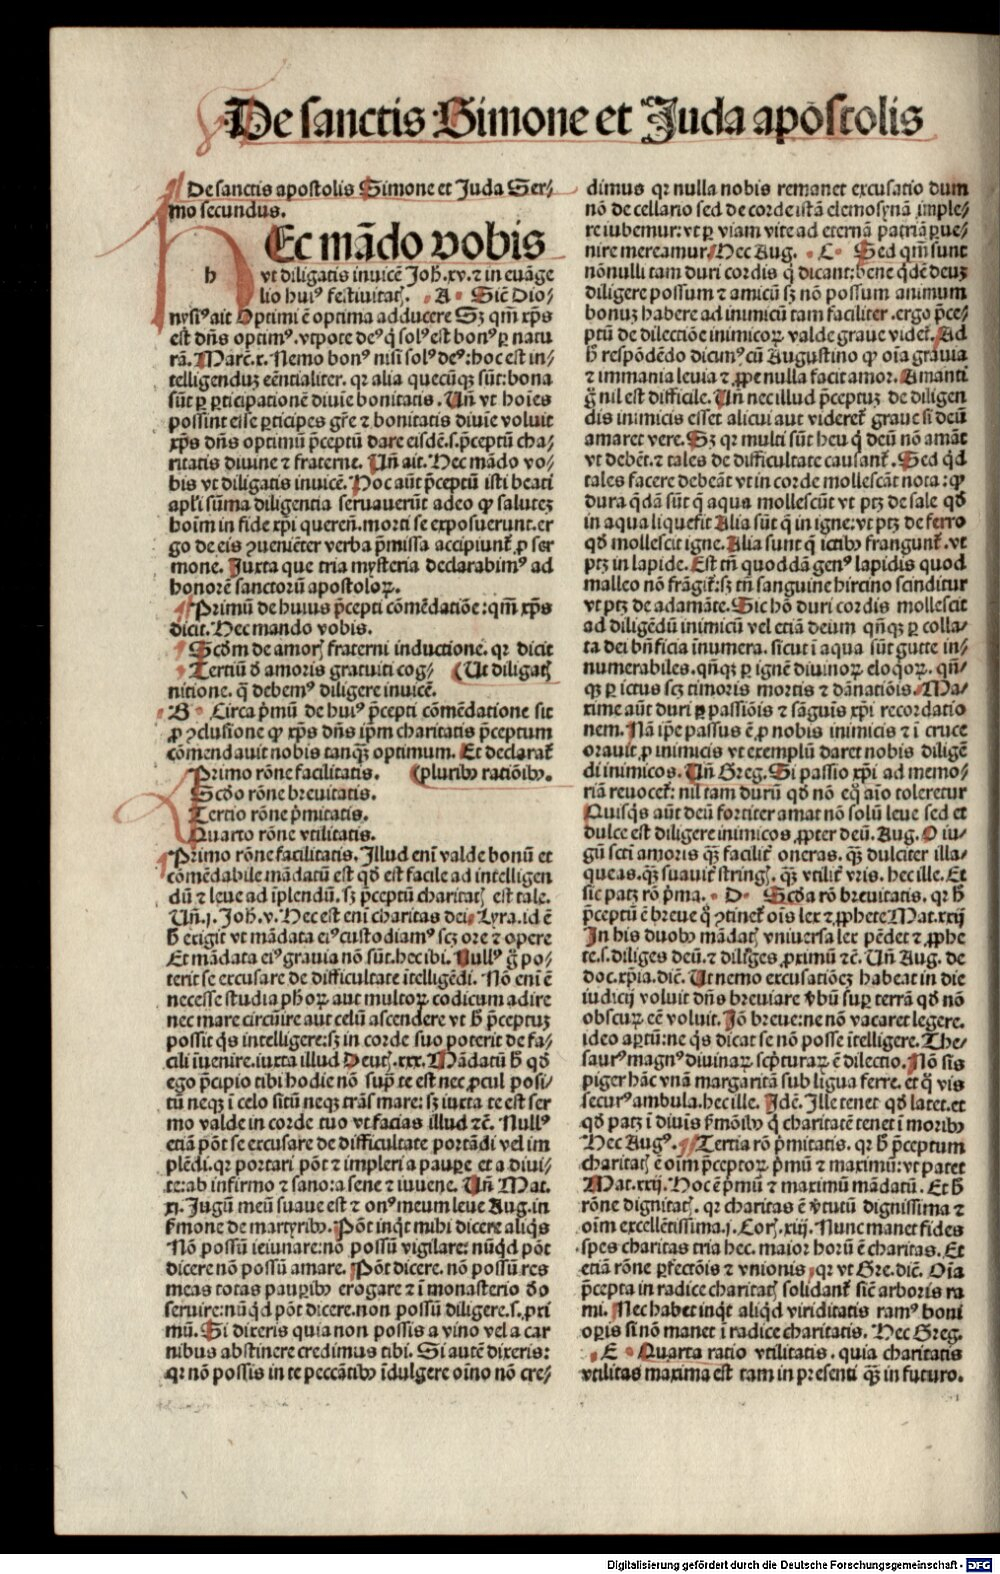 De sanctis Simone et Juda apōstolis
De sanctis apostolis Simone et Juda Ser/
mo secundus.
HEc mādo vobis
vt diligatis inuicē Joh̄.xv.⁊ in euāge
lio huiꝰ festiuitatꝭ. A Sicē Dio/
nysiꝰ ait Optimi ē optima adducere Sꝫ qm̄ xp̄s
est dn̄s optimꝰ. vtpote deꝰ q̇ solꝰ est bonꝰ ꝑ natu
rā. Marcē.x. Nemo bonꝰ nisi solꝰ deꝰ: hoc est in/
telligenduꝫ eēntialiter. qꝛ alia quecūqꝫ sūt: bona
sūt ꝑ ꝑticipationē diuīe bonitatis. Un̄ vt hoīes
possint esse ꝑticipes gr̄e ⁊ bonitatis diuīe voluit
xp̄s dn̄s optimū p̄ceptū dare eisdē.s.p̄ceptū cha/
ritatis diuine ⁊ fraterne. Un̄ ait. Hec mādo vo/
bis vt diligatis inuicē. Hoc aūt p̄ceptū isti beati
apl'i sūma diligentia seruauerūt adeo ꝙ salutez
hoīm in fide xp̄i querēn̄.morti se exposuerunt.er
go de eis ꝯueniēter verba p̄missa accipiunt̄ ꝓ ser
mone. Juxta que tria mysteria declarabimꝰ ad
honorē sanctorū apostoloꝝ.
¶ Primū de huius p̄cepti cōmēdatiōe: qm̄ xp̄s
dicit. Hec mando vobis.
¶ Scd̄m de amorꝭ fraterni inductione. qꝛ dicit
¶ Tertiū d̄ amoris gratuiti cog/ (Ut diligatꝭ
nitione. q̄ debemꝰ diligere inuicē.
B Circa p̄mū de huiꝰ p̄cepti cōmēdatione sit
ꝓ ꝯclusione ꝙ xp̄s dn̄s ip̄m charitatis p̄ceptum
cōmendauit nobis tanqꝫ optimum. Et declarat̄
Primo rōne facilitatis. (pluribꝰ ratiōibꝰ.
Scd̄o rōne breuitatis.
Tertio rōne p̄mitatis.
Quarto rōne vtilitatis.
Primo rōne facilitatis. Illud eni valde bonū et
cōmēdabile mādatū est qd̄ est facile ad intelligen
dū ⁊ leue ad īplendū. sꝫ p̄ceptū charitatꝭ est tale.
Un̄.j. Joh̄.v. Hec est eni charitas dei. Lyra.id ē
h̄ exigit vt mādata eiꝰ custodiamꝰ scꝫ ore ⁊ opere
Et mādata eiꝰ grauia nō sūt.hec ibi. Nullꝰ g̊ po/
terit se excusare de difficultate ītelligēdi. Nō eni ē
necesse studia ph̄oꝝ aut multoꝝ codicum adire
nec mare circūire aut celū ascendere vt h̄ p̄ceptuꝫ
possit q̇s intelligere: sꝫ in corde suo poterit de fa/
cili īuenire.iuxta illud Deutꝭ.xxx. Mādatū h̄ qd̄
ego p̄cipio tibi hodie nō sup̄ te est nec ꝓcul posi/
tū neqꝫ ī celo sitū neqꝫ trās mare: sꝫ iuxta te est ser
mo valde in corde tuo vt facias illud ⁊cē. Nullꝰ
etiā pōt se excusare de difficultate portādi vel im
plēdi.qꝛ portari pōt ⁊ impleri a paupe et a diui/
te: ab infirmo ⁊ sano: a sene ⁊ iuuene. Un̄ Mat.
xj. Jugū meū suaue est ⁊ onꝰ meum leue Aug.in
s̄mone de martyribꝰ. Pōt inq̇t mihi dicere aliq̇s
Nō possū ieiunare: nō possū vigilare: nūq̇d pōt
dicere nō possū amare. Pōt dicere. nō possū res
meas totas paupibꝰ erogare ⁊ ī monasterio do
seruire: nūq̇d pōt dicere.non possū diligere.s.pxi
mū. Si dixeris quia non possis a vino vel a car
nibus abstinere credimus tibi. Si autē dixeris:
qꝛ nō possis in te peccātibꝰ īdulgere oīno nō cre/
dimus qꝛ nulla nobis remanet excusatio dum
nō de cellario sed de corde istā elemosynā imple/
re iubemur: vt ꝑ viam vite ad eternā patriā ꝑue/
nire mereamur. Hec Aug. C Sed qm̄ sunt
nōnulli tam duri cordis q̇ dicant: bene q̇dē deuꝫ
diligere possum ⁊ amicū sꝫ nō possum animum
bonuꝫ habere ad inimicū tam faciliter. ergo p̄ce/
ptū de dilectiōe inimicoꝝ valde graue videt̄. Ad
h̄ respōdēdo dicimꝰ cū Augustino ꝙ oīa grauia
⁊ immania leuia ⁊ ꝓpe nulla facit amor. Amanti
g̊ nil est difficile. Un̄ nec illud p̄ceptuꝫ de diligen
dis inimicis esset alicui aut videret̄ graue si deū
amaret vere. Sꝫ qꝛ multi sūt heu q̇ deū nō amāt
vt debēt.⁊ tales de difficultate causant̄. Sed q̇d
tales facere debeāt vt in corde mollescāt nota: ꝙ
dura q̄dā sūt q̄ aqua mollescūt vt ptꝫ de sale qd̄
in aqua liquefit Alia sūt q̄ in igne: vt ptꝫ de ferro
qd̄ mollescit igne. Alia sunt q̄ ictibꝰ frangunt̄.vt
ptꝫ in lapide. Est tn̄ quoddā genꝰ lapidis quod
malleo nō frāgit̄: sꝫ tn̄ sanguine hircino scinditur
vt ptꝫ de adamāte. Sic hō duri cordis mollescit
ad diligēdū inimicū vel etiā deum qn̄qꝫ ꝑ colla/
ta dei bn̄ficia inumera. sicut ī aqua sūt gutte in/
numerabiles.qn̄qꝫ ꝑ ignē diuinoꝝ eloq̇oꝝ. qn̄/
qꝫ ꝑ ictus scꝫ timoris mortis ⁊ dānatiōis. Ma/
xime aūt duri ꝑ passiōis ⁊ sāguīs xp̄i recordatio
nem. Nā ip̄e passus ē ꝓ nobis inimicis ⁊ ī cruce
orauit ꝓ inimicis vt exemplū daret nobis diligē
di inimicos. Un̄ Greg. Si passio xp̄i ad memo/
riā reuocet̄: nil tam durū qd̄ nō eq̇ aīo toleretur
Quisq̇s aūt deū fortiter amat nō solū leue sed et
dulce est diligere inimicos ꝓpter deū. Aug. O iu/
gū scti amoris qꝫ facilit̄ oneras. qꝫ dulciter illa/
queas.qꝫ suauit̄ stringꝭ. qꝫ vtilit̄ vris. hec ille. Et
sic patꝫ rō p̄ma. D Scd̄a rō breuitatis. qꝛ h̄
p̄ceptū ē breue q̊ ꝯtinet̄ oīs lex ⁊ ꝓphete Mat.xxij
In his duobꝰ mādatꝭ vniuersa lex pēdet ⁊ ꝓphe
te.s.diliges deū.⁊ diliges ꝓximū ⁊cē. Un̄ Aug. de
doc.xp̄ia.dic̄. Ut nemo excusatiōeꝫ habeat in die
iudicij voluit dn̄s breuiare v̄bū sup terrā qd̄ nō
obscuꝝ eē voluit. Jō breue: ne nō vacaret legere.
ideo aptū: ne q̇s dicat se nō posse ītelligere. The/
saurꝰ magnꝰ diuinaꝝ scp̄turaꝝ ē dilectio. Nō sis
piger hāc vnā margaritā sub ligua ferre. et q̊ vis
securꝰ ambula.hec ille. Idē. Ille tenet qd̄ latet.et
qd̄ patꝫ ī diuīs s̄mōibꝰ q̇ charitatē tenet ī moribꝰ
Hec Augꝰ. ¶ Tertia rō p̄mitatis. qꝛ h̄ p̄ceptum
charitatꝭ ē oīm p̄ceptoꝝ p̄mū ⁊ maximū: vt patet
Mat.xxij. Hoc ē p̄mū ⁊ maximū mādatū. Et h̄
rōne dignitatꝭ. qꝛ charitas ē v̄tutū dignissima ⁊
oīm excellētissima.j. Corꝭ.xiij. Nunc manet fides
spes charitas tria hec. maior horū ē charitas. Et
etiā rōne ꝑfectōis ⁊ vnionis, qꝛ vt Gre.dic̄. Oīa
p̄cepta in radice charitatꝭ solidant̄ sic̄ arboris ra
mi. Nec habet inq̇t aliq̇d viriditatis ramꝰ boni
opis si nō manet ī radice charitatis. Hec Greg.
E Quarta ratio vtilitatis. quia charitatis
vtilitas maxima est tam in presenti qꝫ in futuro.
Digitalisierung gefördert durch die Deutsche Forschungsgemeinschaft - DFG